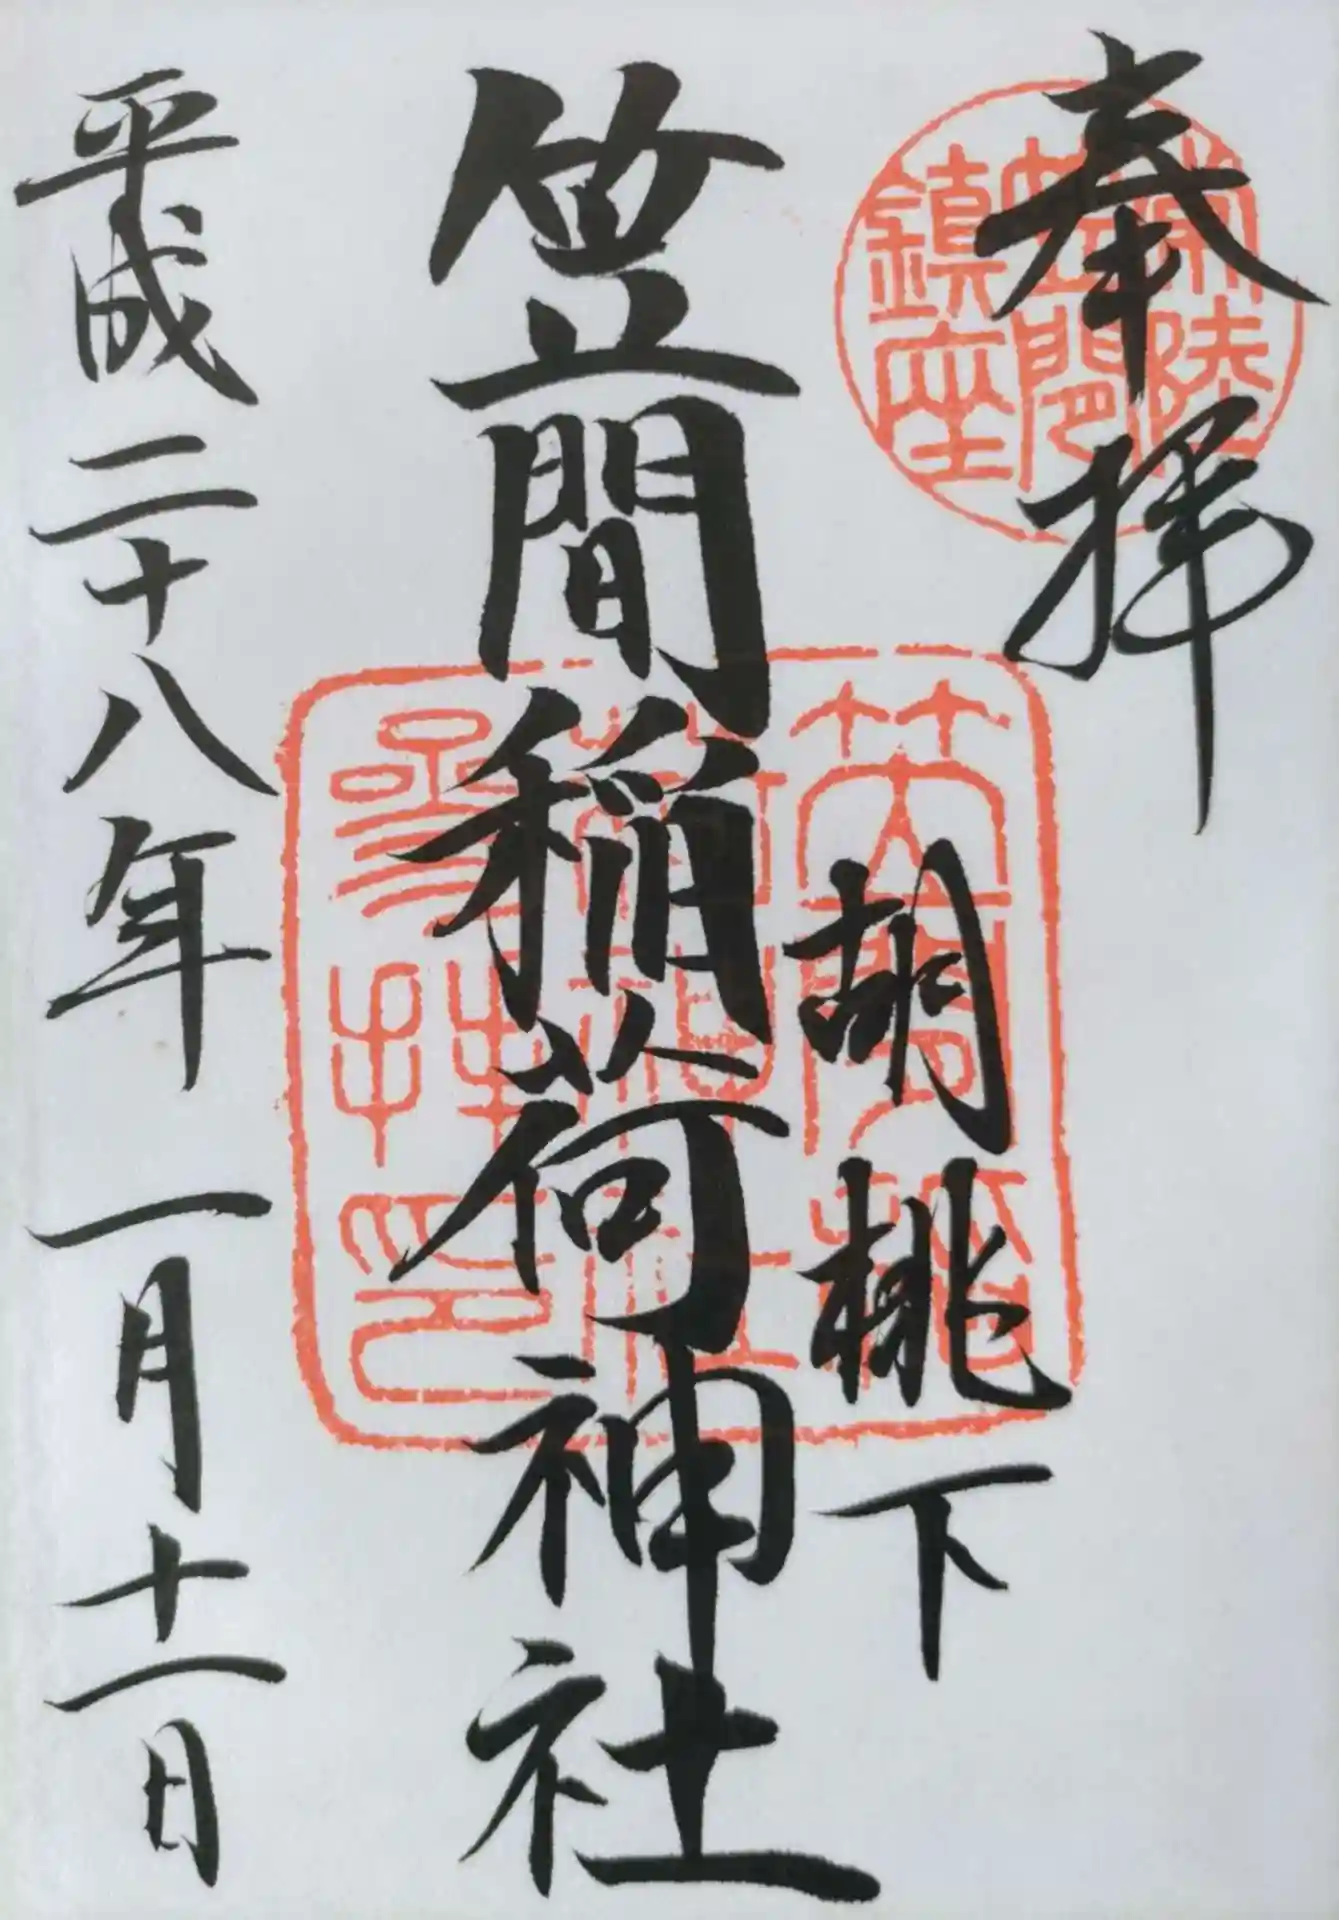 奉拝
常陸
笠間
鎮座
胡桃下
笠間稲荷神社
笠間稲
荷神社
参拝印
平成二十八年一月十一日